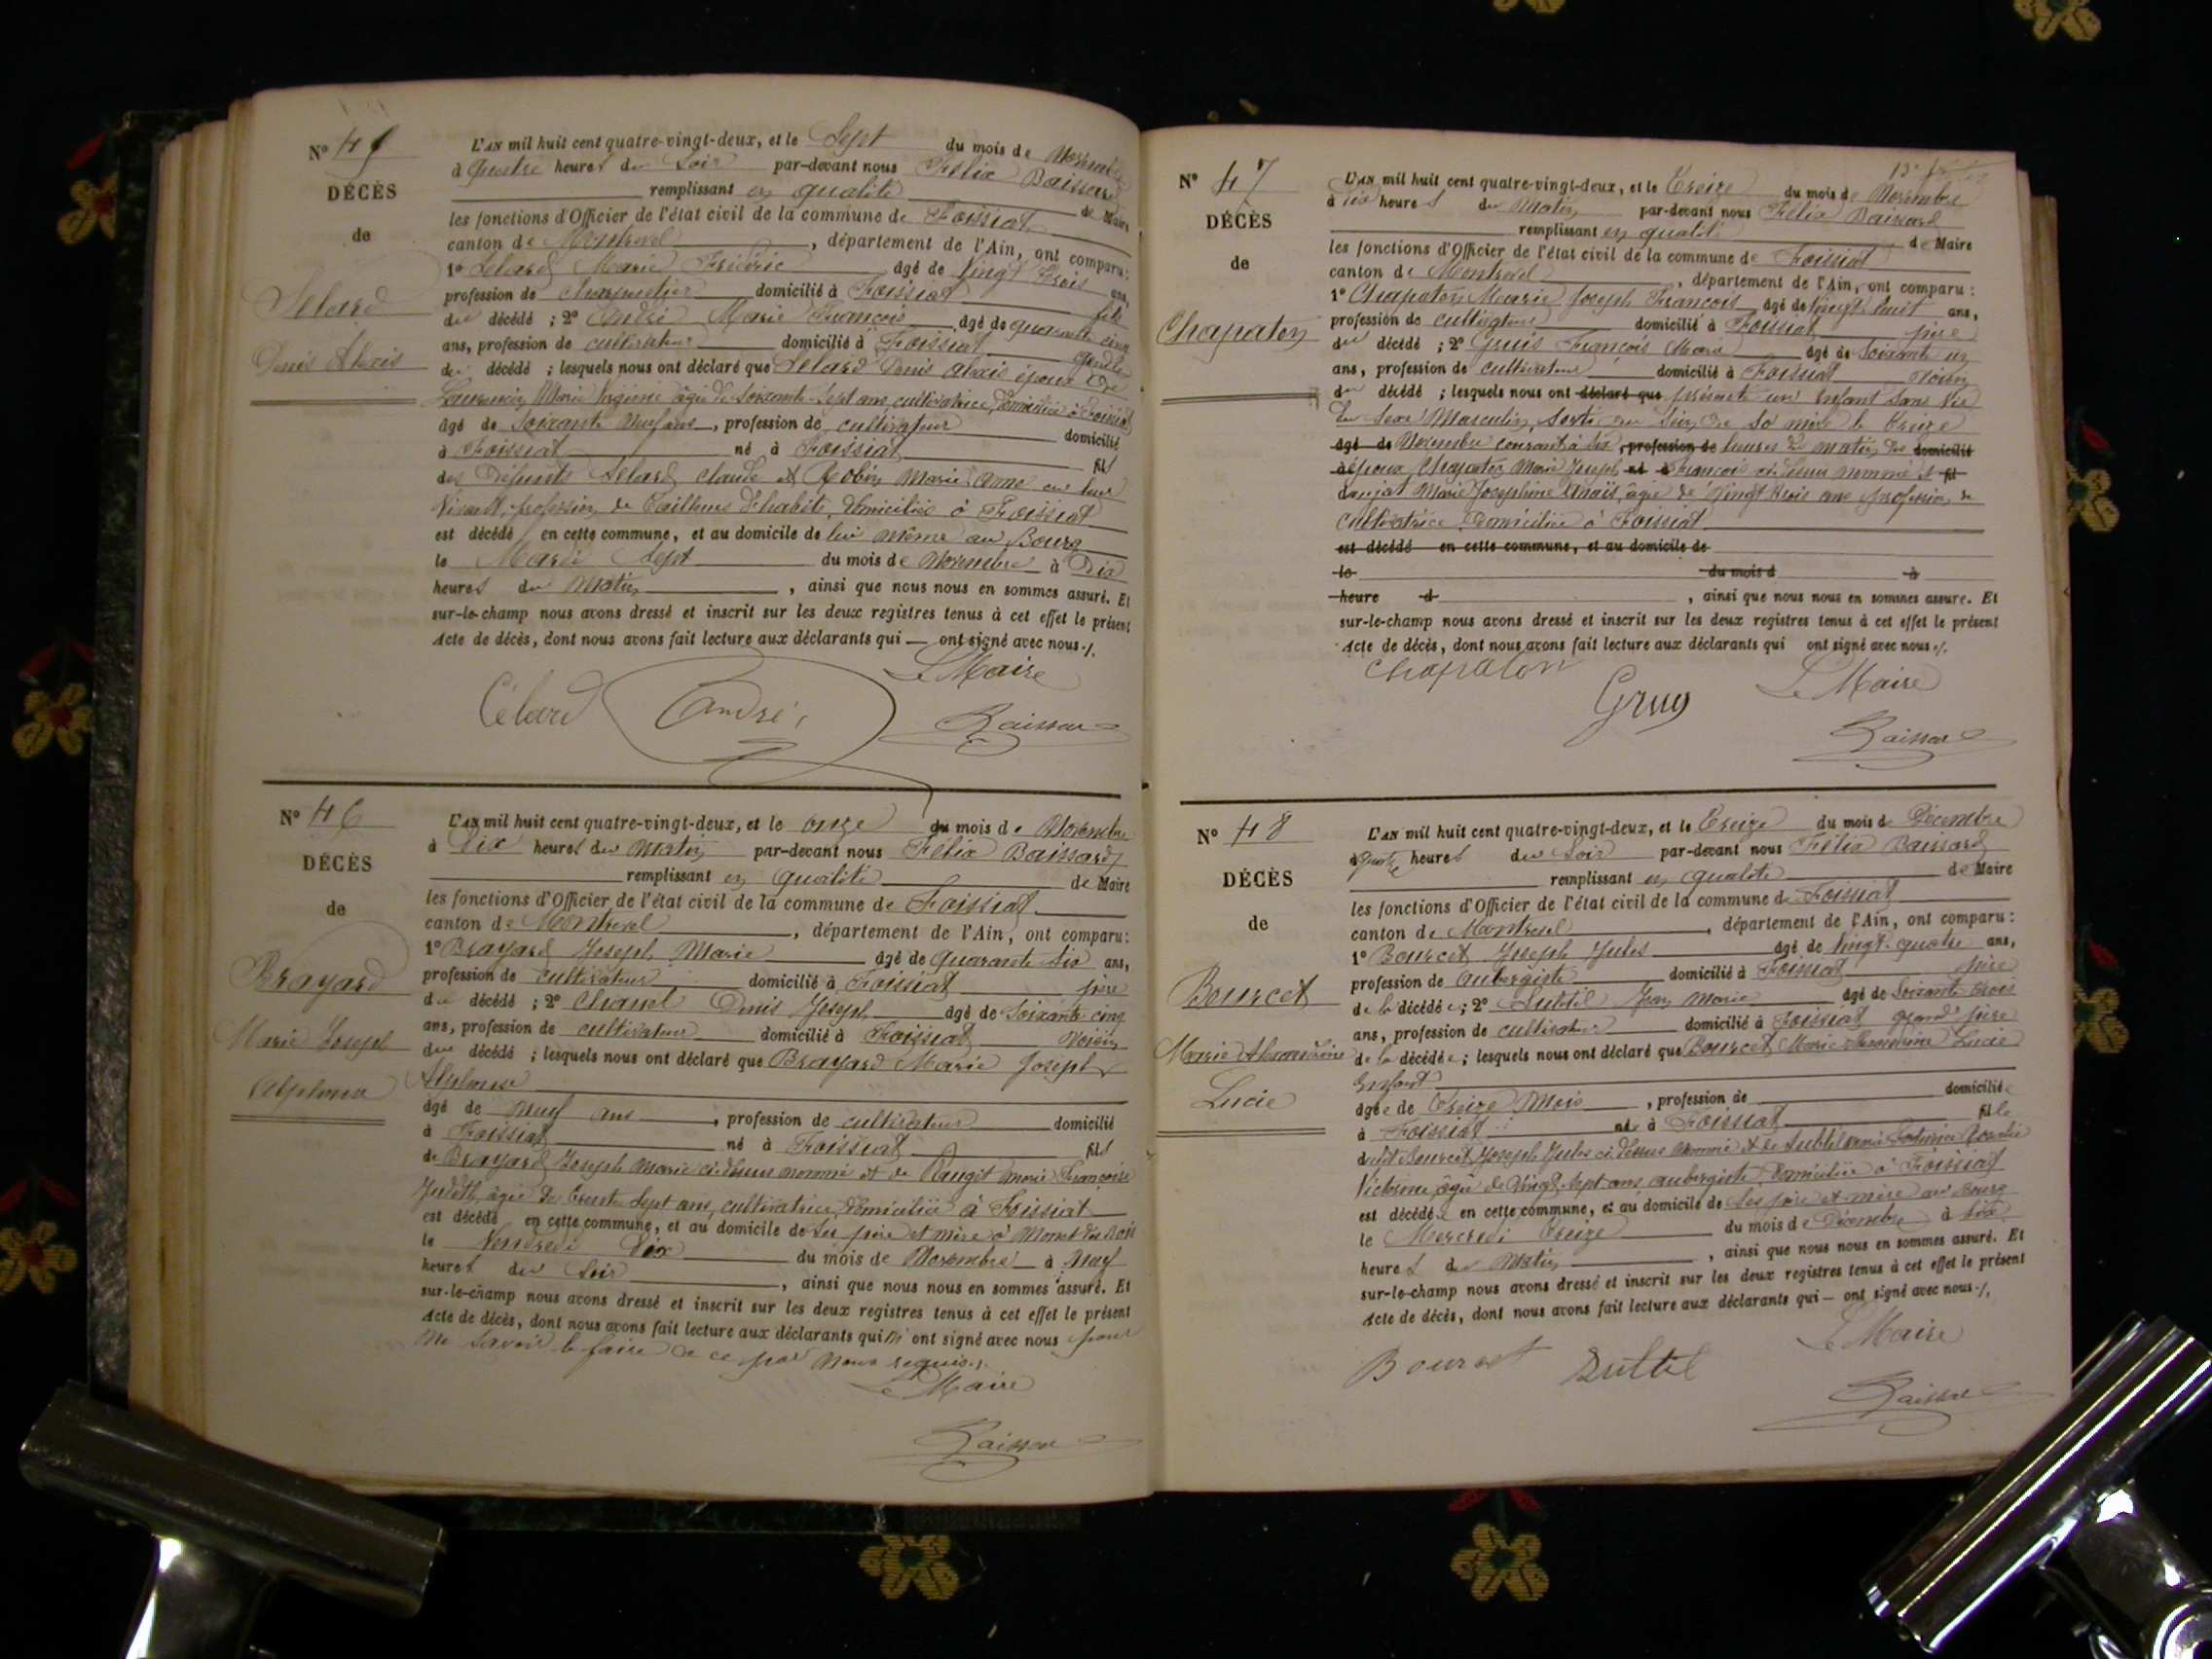 N° 45
DÉCÈS
de
Celard
Denis Alexis
L'AN mil huit cent quatre-vingt-deux, et le Sept du mois de Novembre
à quatre heures du Soir par-devant nous Félix Baissard
remplissant en qualité de Maire
les fonctions d'Officier de l'état civil de la commune de Foissiat
canton de Montrevel, département de l'Ain, ont comparu:
1° Celard Marie Frédéric âgé de Vingt trois ans,
profession de charpentier domicilié à Foissiat fils
du décédé; 2° André Marie François, âgé de quarante cinq
ans, profession de cultivateur domicilié à Foissiat gendre
du décédé; lesquels nous ont déclaré que Celard Denis Alexis époux de
Laurencin Marie Virginie âgée de Soixante-Sept ans, cultivatrice, domiciliée à Foissiat
âgé de Soixante Neuf ans, profession de cultivateur domicilié
à Foissiat né à Foissiat fils
des Défunts Celard Claude et Robin Marie Anne en leur
vivant, profession de Tailleurs d'habits, domiciliés à Foissiat
est décédé en cette commune, et au domicile de lui même au Bourg
le Mardi Sept du mois de Novembre à Dix
heures du Matin, ainsi que nous nous en sommes assuré. Et
sur-le-champ nous avons dressé et inscrit sur les deux registres tenus à cet effet le présent
Acte de décès, dont nous avons fait lecture aux déclarants qui — ont signé avec nous ./.
Le Maire
Célard André Baissard
N° 46
DÉCÈS
de
Brayard
Marie Joseph
Alphonse
L'AN mil huit cent quatre-vingt-deux, et le onze du mois de Novembre
à Dix heures du Matin par-devant nous Félix Baissard
remplissant en qualité de Maire
les fonctions d'Officier de l'état civil de la commune de Foissiat
canton de Montrevel, département de l'Ain, ont comparu:
1° Brayard Joseph Marie âgé de quarante Six ans,
profession de cultivateur domicilié à Foissiat père
du décédé; 2° Chanel Denis Joseph âgé de Soixante cinq
ans, profession de cultivateur domicilié à Foissiat Voisin
du décédé; lesquels nous ont déclaré que Brayard Marie Joseph
Alphonse
âgé de neuf ans, profession de cultivateur domicilié
à Foissiat né à Foissiat fils
de Brayard Joseph Marie ci-dessus nommé et de Marie Françoise
Judith, âgée de trente Sept ans, cultivatrice, domiciliée à Foissiat
est décédé en cette commune, et au domicile de Ses père et mère à
le Vendredi Dix du mois de Novembre à Neuf
heures du Soir, ainsi que nous nous en sommes assuré. Et
sur-le-champ nous avons dressé et inscrit sur les deux registres tenus à cet effet le présent
Acte de décès, dont nous avons fait lecture aux déclarants qui n'ont signé avec nous pour
ne Savoir le faire de ce par Nous requis ./.
Le Maire
Baissard
N° 47
DÉCÈS
de
Chapaton
L'AN mil huit cent quatre-vingt-deux, et le Treize du mois de Novembre
à Dix heures du Matin par-devant nous Félix Baissard
remplissant en qualité de Maire
les fonctions d'Officier de l'état civil de la commune de Foissiat
canton de Montrevel, département de l'Ain, ont comparu:
1° Chapaton Marie Joseph François âgé de Vingt huit ans,
profession de cultivateur domicilié à Foissiat père
du décédé; 2° Gruis François Marie âgé de Soixante un
ans, profession de cultivateur domicilié à Foissiat Voisin
du décédé; lesquels nous ont déclaré que présenté un Enfant Sans Vie
du Sexe Masculin, Sorti du Sein de Sa mère le Treize
âgé de Novembre courant à Six, profession de heures du matin des domicilié
à époux Chapaton Marie Joseph né à François ci-dessus nommé et fil
Danjat Marie Joséphine Anaïs, âgée de Vingt trois ans profession de
cultivatrice, domiciliée à Foissiat
est décédé en cette commune, et au domicile de
le du mois d à
heure d, ainsi que nous nous en sommes assuré. Et
sur-le-champ nous avons dressé et inscrit sur les deux registres tenus à cet effet le présent
Acte de décès, dont nous avons fait lecture aux déclarants qui ont signé avec nous ./.
Chapaton Gruy Le Maire
Baissard
N° 48
DÉCÈS
de
Bourcet
Marie Alexandrine
Lucie
L'AN mil huit cent quatre-vingt-deux, et le Treize du mois de Décembre
à quatre heures du Soir par-devant nous Félix Baissard
remplissant en qualité de Maire
les fonctions d'Officier de l'état civil de la commune de Foissiat
canton de Montrevel, département de l'Ain, ont comparu:
1° Bourcet Joseph Jules âgé de Vingt-quatre ans,
profession de aubergiste domicilié à Foissiat père
de la décédée; 2° Subtil Jean Marie âgé de Soixante trois
ans, profession de cultivateur domicilié à Foissiat grand père
de la décédée; lesquels nous ont déclaré que Bourcet Marie Alexandrine Lucie
Enfant
âgée de Treize Mois, profession de domiciliée
à Foissiat née à Foissiat fille
dudit Bourcet Joseph Jules ci-dessus Nommé et de Subtil Marie
Victorine, âgée de Vingt Sept ans aubergiste, domiciliée à Foissiat
est décédée en cette commune, et au domicile de Ses père et mère au Bourg
le Mercredi Treize du mois de Décembre à Six
heures du Matin, ainsi que nous nous en sommes assuré. Et
sur-le-champ nous avons dressé et inscrit sur les deux registres tenus à cet effet le présent
Acte de décès, dont nous avons fait lecture aux déclarants qui — ont signé avec nous ./.
Le Maire
Bourcet Subtil
Baissard